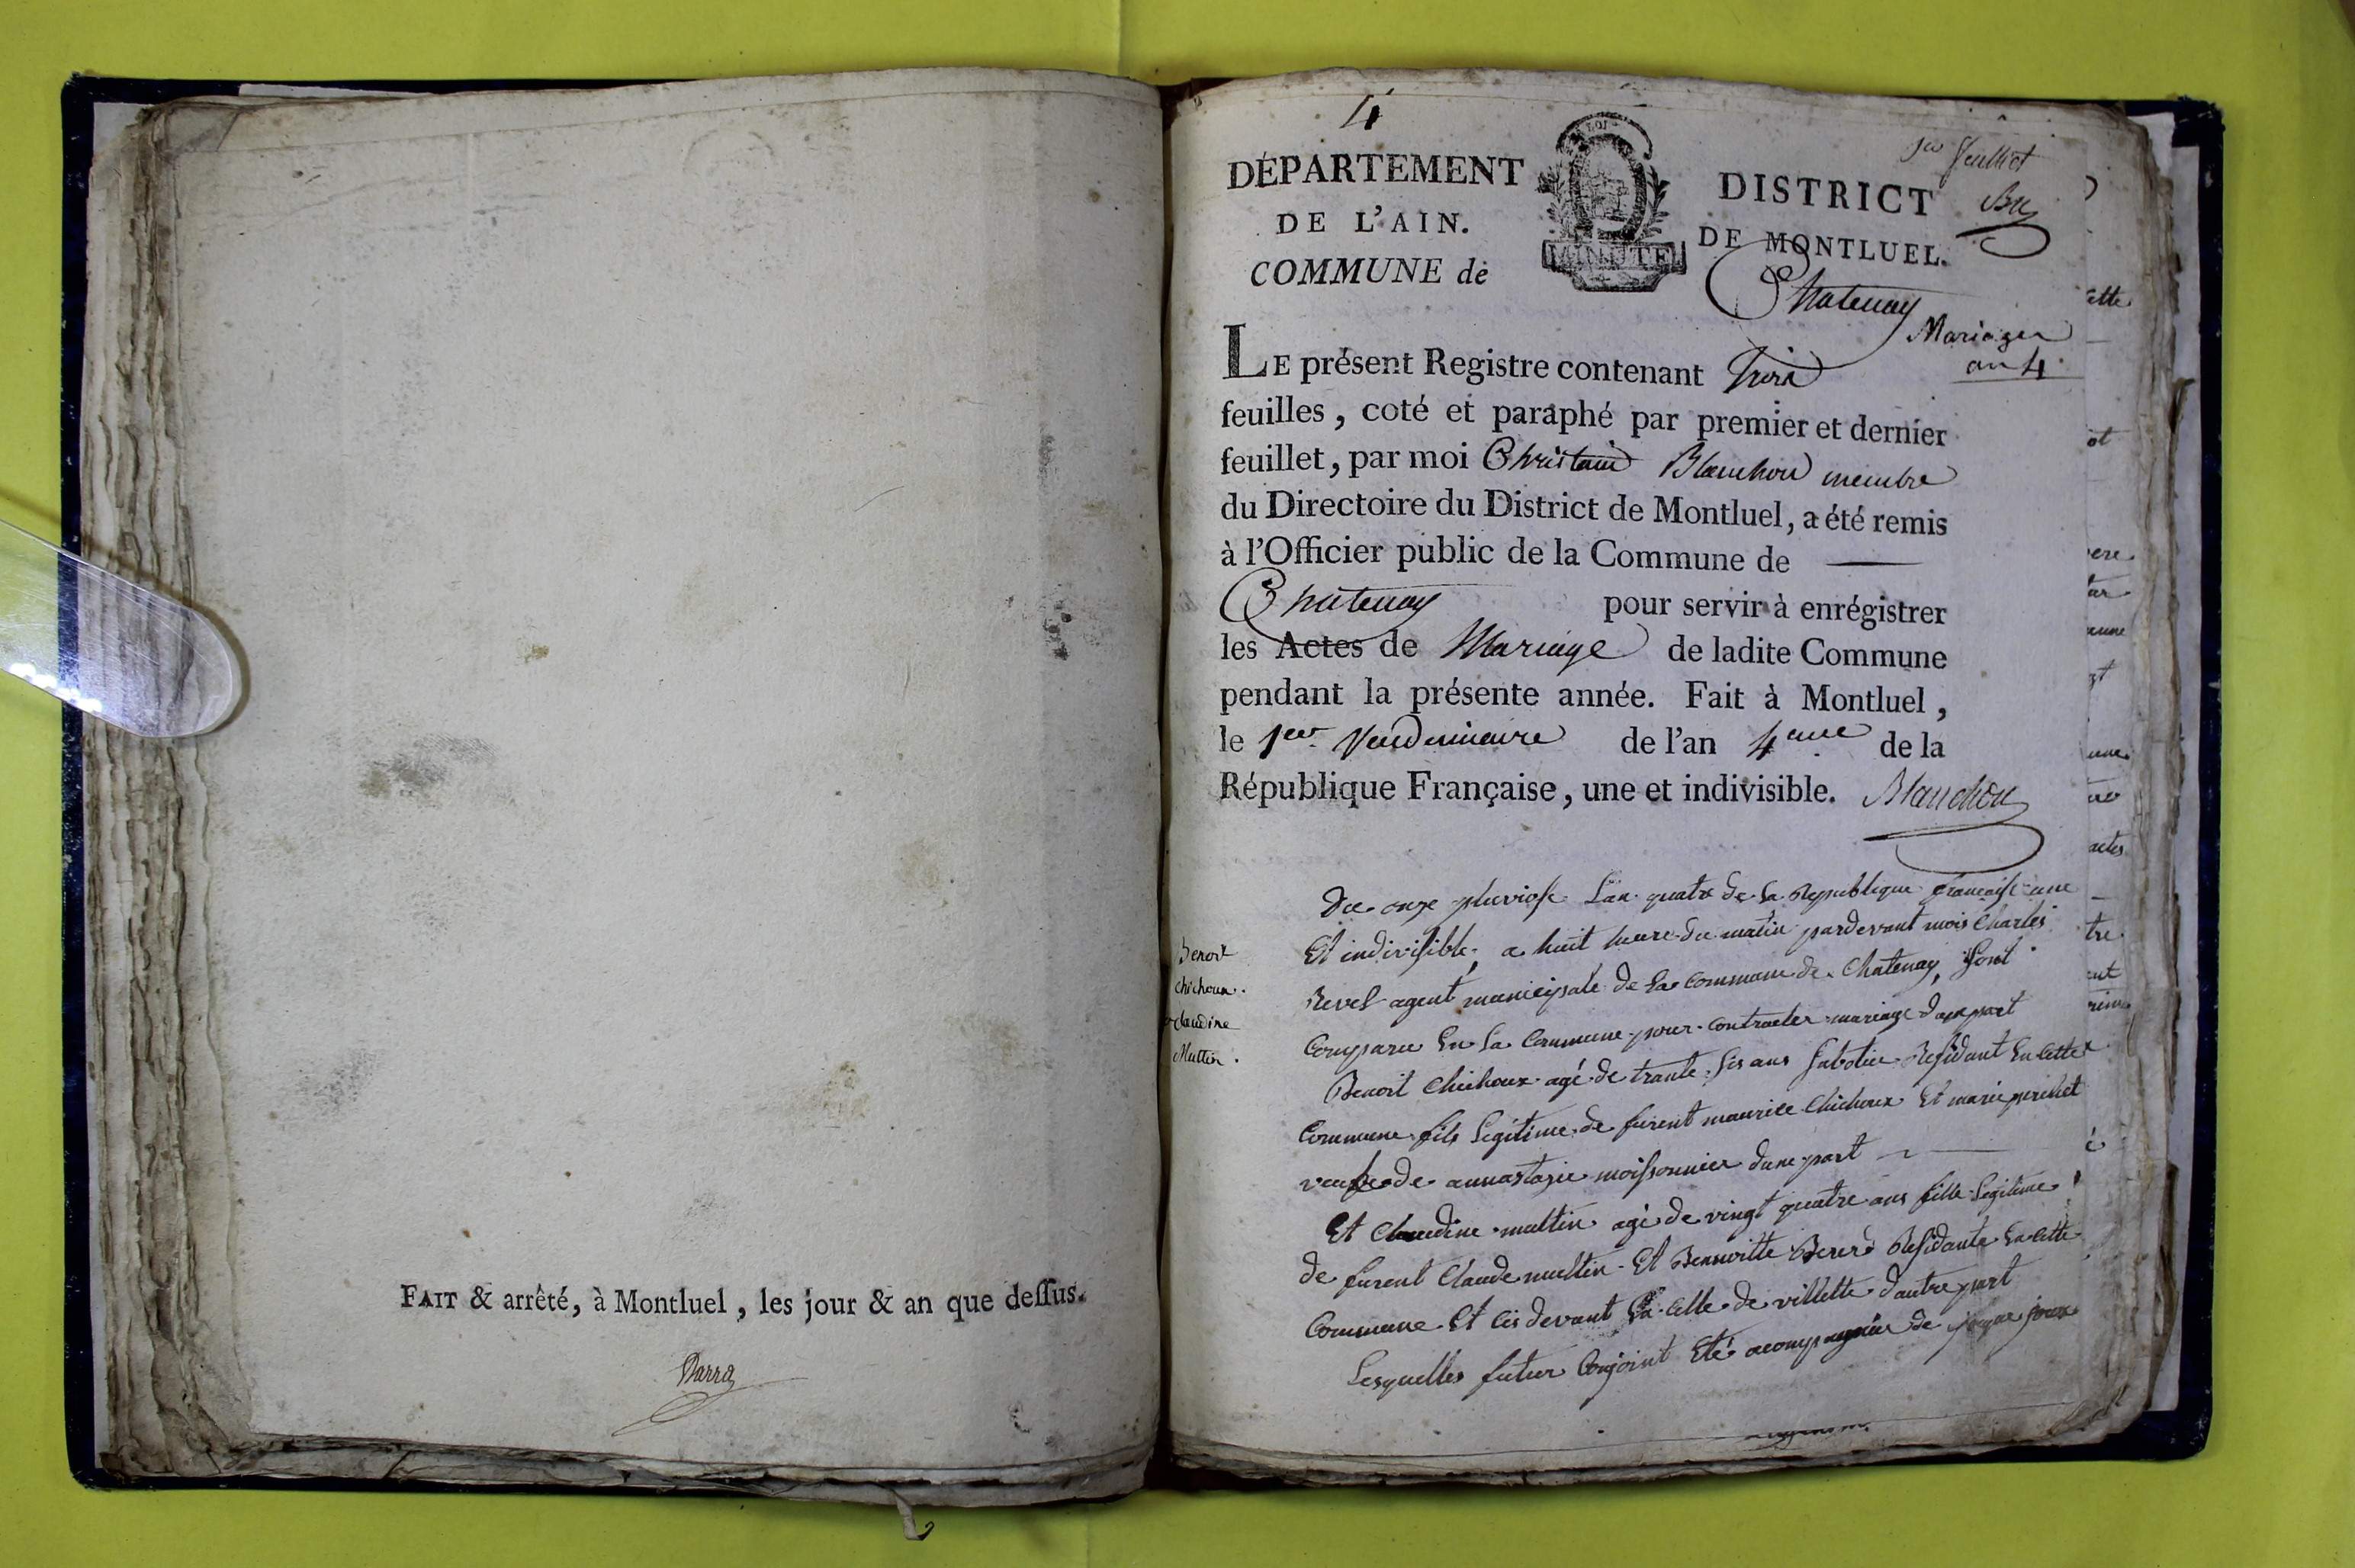 FAIT & arrêté, à Montluel, les jour & an que dessus.
Darra
4
1er feuillet
DÉPARTEMENT
DE L'AIN.
COMMUNE de
LOI
MINUTE
DISTRICT
DE MONTLUEL.
Chatenay
Mariages
an 4.
LE présent Registre contenant trois
feuilles, coté et paraphé par premier et dernier
feuillet, par moi Christain Blanchon membre
du Directoire du District de Montluel, a été remis
à l'Officier public de la Commune de
Chatenay pour servir à enrégistrer
les Actes de Mariage de ladite Commune
pendant la présente année. Fait à Montluel,
le 1er Vendemiaire de l'an 4eme de la
République Française, une et indivisible. Blanchon
Benoit
Chichoux.
Claudine
Multin.
Du onze pluviose L'an quatre de la Republique francaise une
Et indivisible, a huit heure du matin pardevant mois Charles
Revel agent municipale de la commune de Chatenay, sont
Comparu En la Commune pour contracter mariage d'une part
Benoit Chichoux agé de trante sis ans sabotie Residant En cette
Commune fils legitime de furent maurice Chichoux Et marie perichet
veufve de annastazie moissonnier dune part
Et Claudine multin agé de vingt quatre ans fille legitime
de furent Claude multin Et Bennoitte Bererd Residante En cette
Commune Et cis devant En Celle de villette d'autre part
Lesquelles futur Conjoint Eté acompagniés de